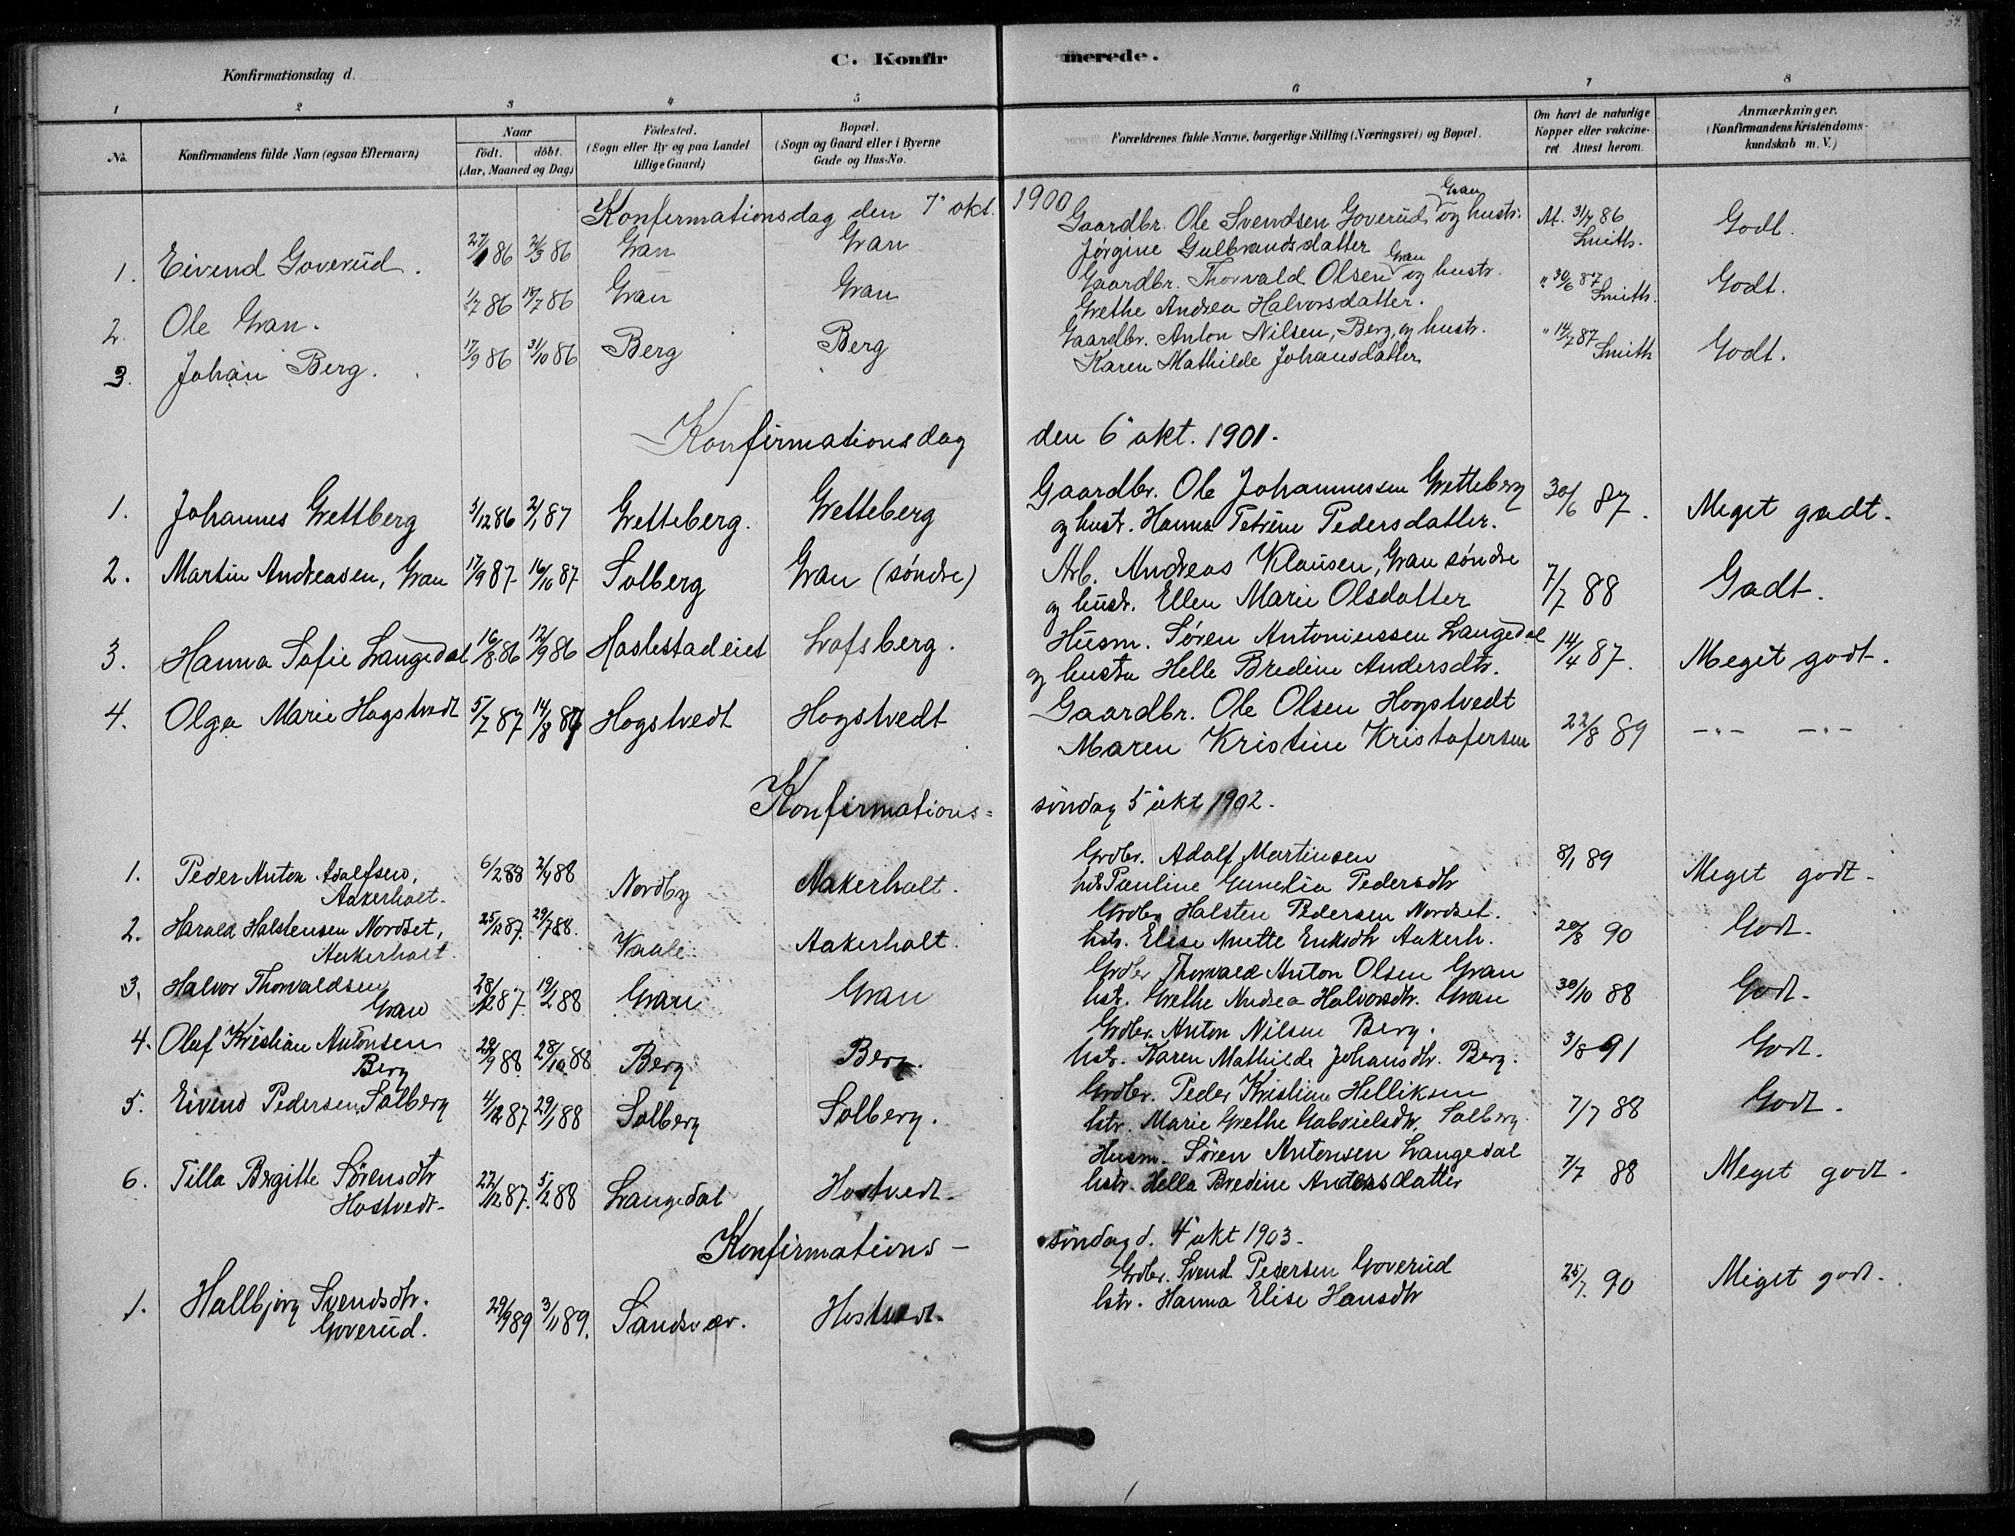 54.
C. Konfirmerede.
Konfirmationsdag d.
1 2 3 4 5 6 7 8
No. Konfirmandens fulde Navn (ogsaa Efternavn) Naar födt. döbt. (Aar, Maaned og Dag) Födested. (Sogn eller By og paa Landet tillige Gaard) Bopæl. (Sogn og Gaard eller i Byerne Gade og Hus-No. Forældrenes fulde Navne, borgerlige Stilling (Næringsvei) og Bopæl. Om havt de naturlige Kopper eller vakcineret. Attest herom. Anmærkninger. (Konfirmandens Kristendomskundskab m. V.)
Konfirmationsdag den 7" okt. 1900
1. Eivend Goverud. 27/1 86 2/3 86 Gran Gran Gaardbr. Ole Svendsen Goverud, Gran og hustr. At. 31/7 86 Godt.
Jørgine Gulbrandsdatter Smith.
2. Ole Gran. 1/7 86 18/7 86 Gran Gran Gaardbr. Thorvald Olsen Gran og hustr. " 30/6 87 Godt.
Grethe Andrea Halvorsdatter. Smith.
3. Johan Berg. 17/9 86 31/10 86 Berg Berg Gaardbr. Anton Nilsen, Berg, og hustr. " 14/7 87 Godt.
Karen Mathilde Johansdatter Smith
Konfirmationsdag den 6" okt. 1901.
1. Johannes Grettberg 3/12 86 2/1 87 Gretteberg. Gretteberg Gaardbr. Ole Johannessen Gretteberg 30/6 87. Meget godt.
og hustr. Hanna Petrine Pedersdatter.
2. Martin Andreasen, Gran 17/9 87 16/10 87 Solberg Gran (søndre) Arb. Andreas Klausen, Gran søndre 7/7 88 Godt.
og hustr. Ellen Marie Olsdatter
3. Hanna Sofie Langedal 16/8 86 12/9 86 Haslestadeiet Lofsberg. Husm. Søren Antoniussen Langedal 14/4 87. Meget godt.
og hustru Helle Bredine Andersdtr.
4. Olga Marie Hogstvedt 5/7 87 14/8 87 Hogstvedt Hogstvedt Gaardbr. Ole Olsen Hogstvedt 22/8 89 -"- -"-
Maren Kristine Kristofersen
Konfirmations= søndag 5" okt 1902.
1. Peder Anton Adolfsen, 6/2 88 2/4 88 Nordby Aakerholt. Grdbr. Adolf Martinsen 8/1 89 Meget godt.
Aakerholt. hst. Pauline Gunelia Pedersdtr
2. Harald Halstensen Nordset, 25/12 87. 29/7 88. Vaale Aakerholt. Grdbr. Halsten Pedersen Nordset. 20/8 90 Godt.
Aakerholt. hstr. Elise Anette Eriksdtr Aakerh.
3. Halvor Thorvaldsen 28/12 87. 19/2 88 Gran Gran Grdbr Thorvald Anton Olsen Gran 30/10 88 Godt.
Gran hstr. Grethe Andrea Halvorsdtr. Gran
4. Oluf Kristian Antonsen 29/9 88. 28/10 88 Berg Berg. Grdbr. Anton Nilsen Berg. 3/8 91 Godt.
Berg hstr. Karen Mathilde Johansdtr. Berg.
5. Eivind Pedersen Solberg 4/12 87 29/1 88 Solberg Solberg. Grdbr. Peder Kristian Helliksen 7/7 88 Godt.
hstr. Marie Grethe Gabrielsdtr. Solberg
6. Tilla Birgitte Sørensdtr 22/12 87. 5/2 88 Langedal Hostvedt. Husm. Søren Antonsen Langedal 7/7 88 Meget godt.
Hostvedt. hstr. Hella Bredine Andersdatter
Konfirmations- søndag d. 4" okt 1903.
1. Hallbjørg Svendsdtr. 29/9 89 3/11 89. Sandsvær. Hostvedt. Grdbr. Svend Pedersen Goverud 25/7 90 Meget godt.
Goverud. hstr. Hanna Elise Hansdtr